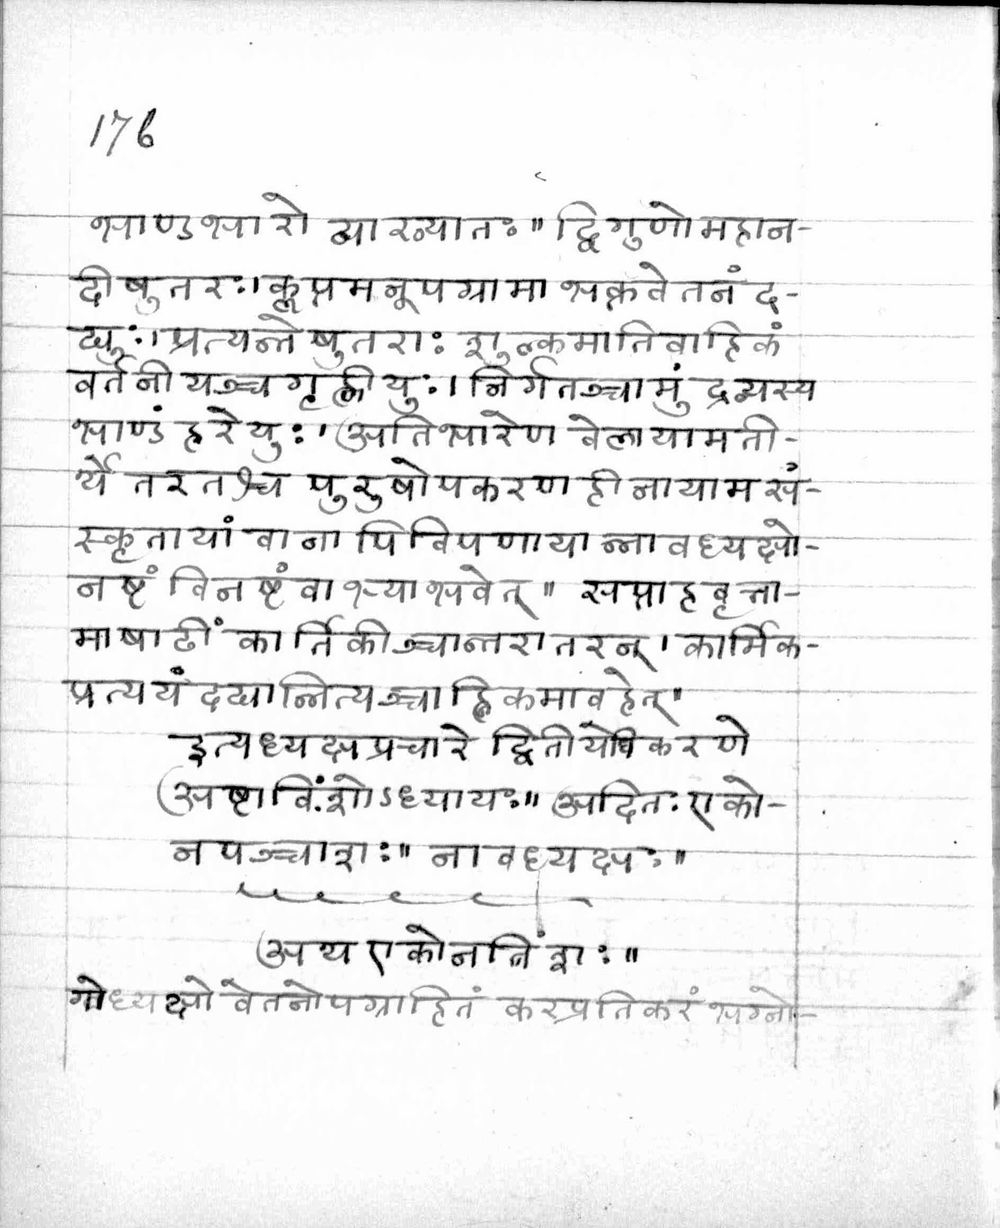 176
भाण्डभारो व्याख्यातः" द्विगुणो महान-
दीषु तरः। कॢप्तमनूपग्रामा भक्तवेतनं द-
द्युः। प्रत्यन्तेषु तराः शुल्कमातिवाहिकं
वर्तनीयञ्च गृह्णीयुः। निर्गतञ्चामुं द्रव्यस्य
भाण्डं हरेयुः। अतिभारेण वेलायामती-
र्थे तरतश्च पुरुषोपकरणहीनायामसं-
स्कृतायां वा नापि विपणायान्नावध्यक्षो-
नष्टं विनष्टं वाभ्याभवेत्" सप्ताहवृत्ता-
माषाढीं कार्तिकीञ्चान्तरातरन्। कार्मिक-
प्रत्ययं दद्यान्नित्यञ्चाह्निकमावहेत्"
इत्यध्यक्षप्रचारे द्वितीयेधिकरणे
अष्टाविंशोऽध्यायः" अदितः एको-
नपञ्चाशः" नावध्यक्षः"
अथ एकोनत्रिंशः"
गोध्यक्षो वेतनोपग्राहितं करप्रतिकरं भग्नो-